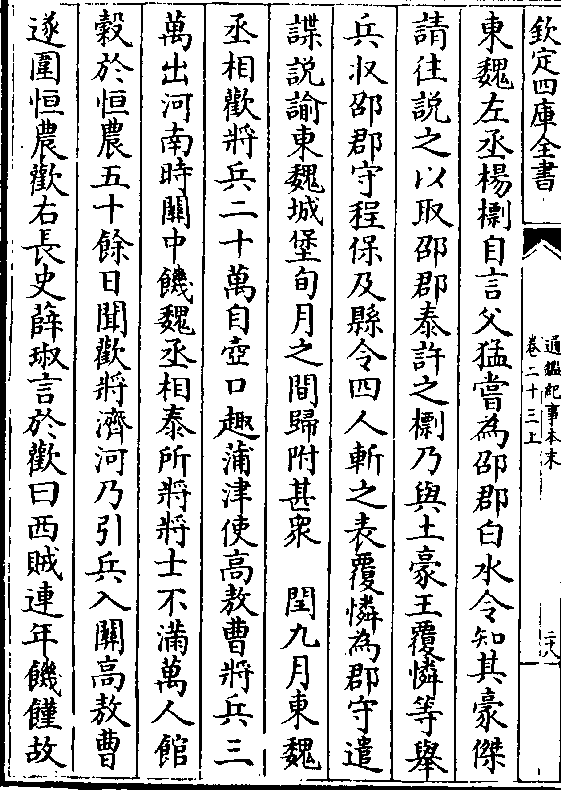 欽定四庫全書
通鑑紀事本末
卷二十三上
二八
東魏左丞楊檦自言父猛嘗為邵郡白水令知其豪傑
請往說之以取邵郡泰許之檦乃與土豪王覆憐等舉
兵收邵郡守程保及縣令四人斬之表覆憐為郡守遣
諜說諭東魏城堡旬月之間歸附甚衆　閏九月東魏
丞相歡將兵二十萬自壺口趣蒲津使高敖曹將兵三
萬出河南時關中饑魏丞相泰所將將士不滿萬人館
穀於恒農五十餘日聞歡將濟河乃引兵入關高敖曹
遂圍恒農歡右長史薛琡言於歡曰西賊連年饑饉故